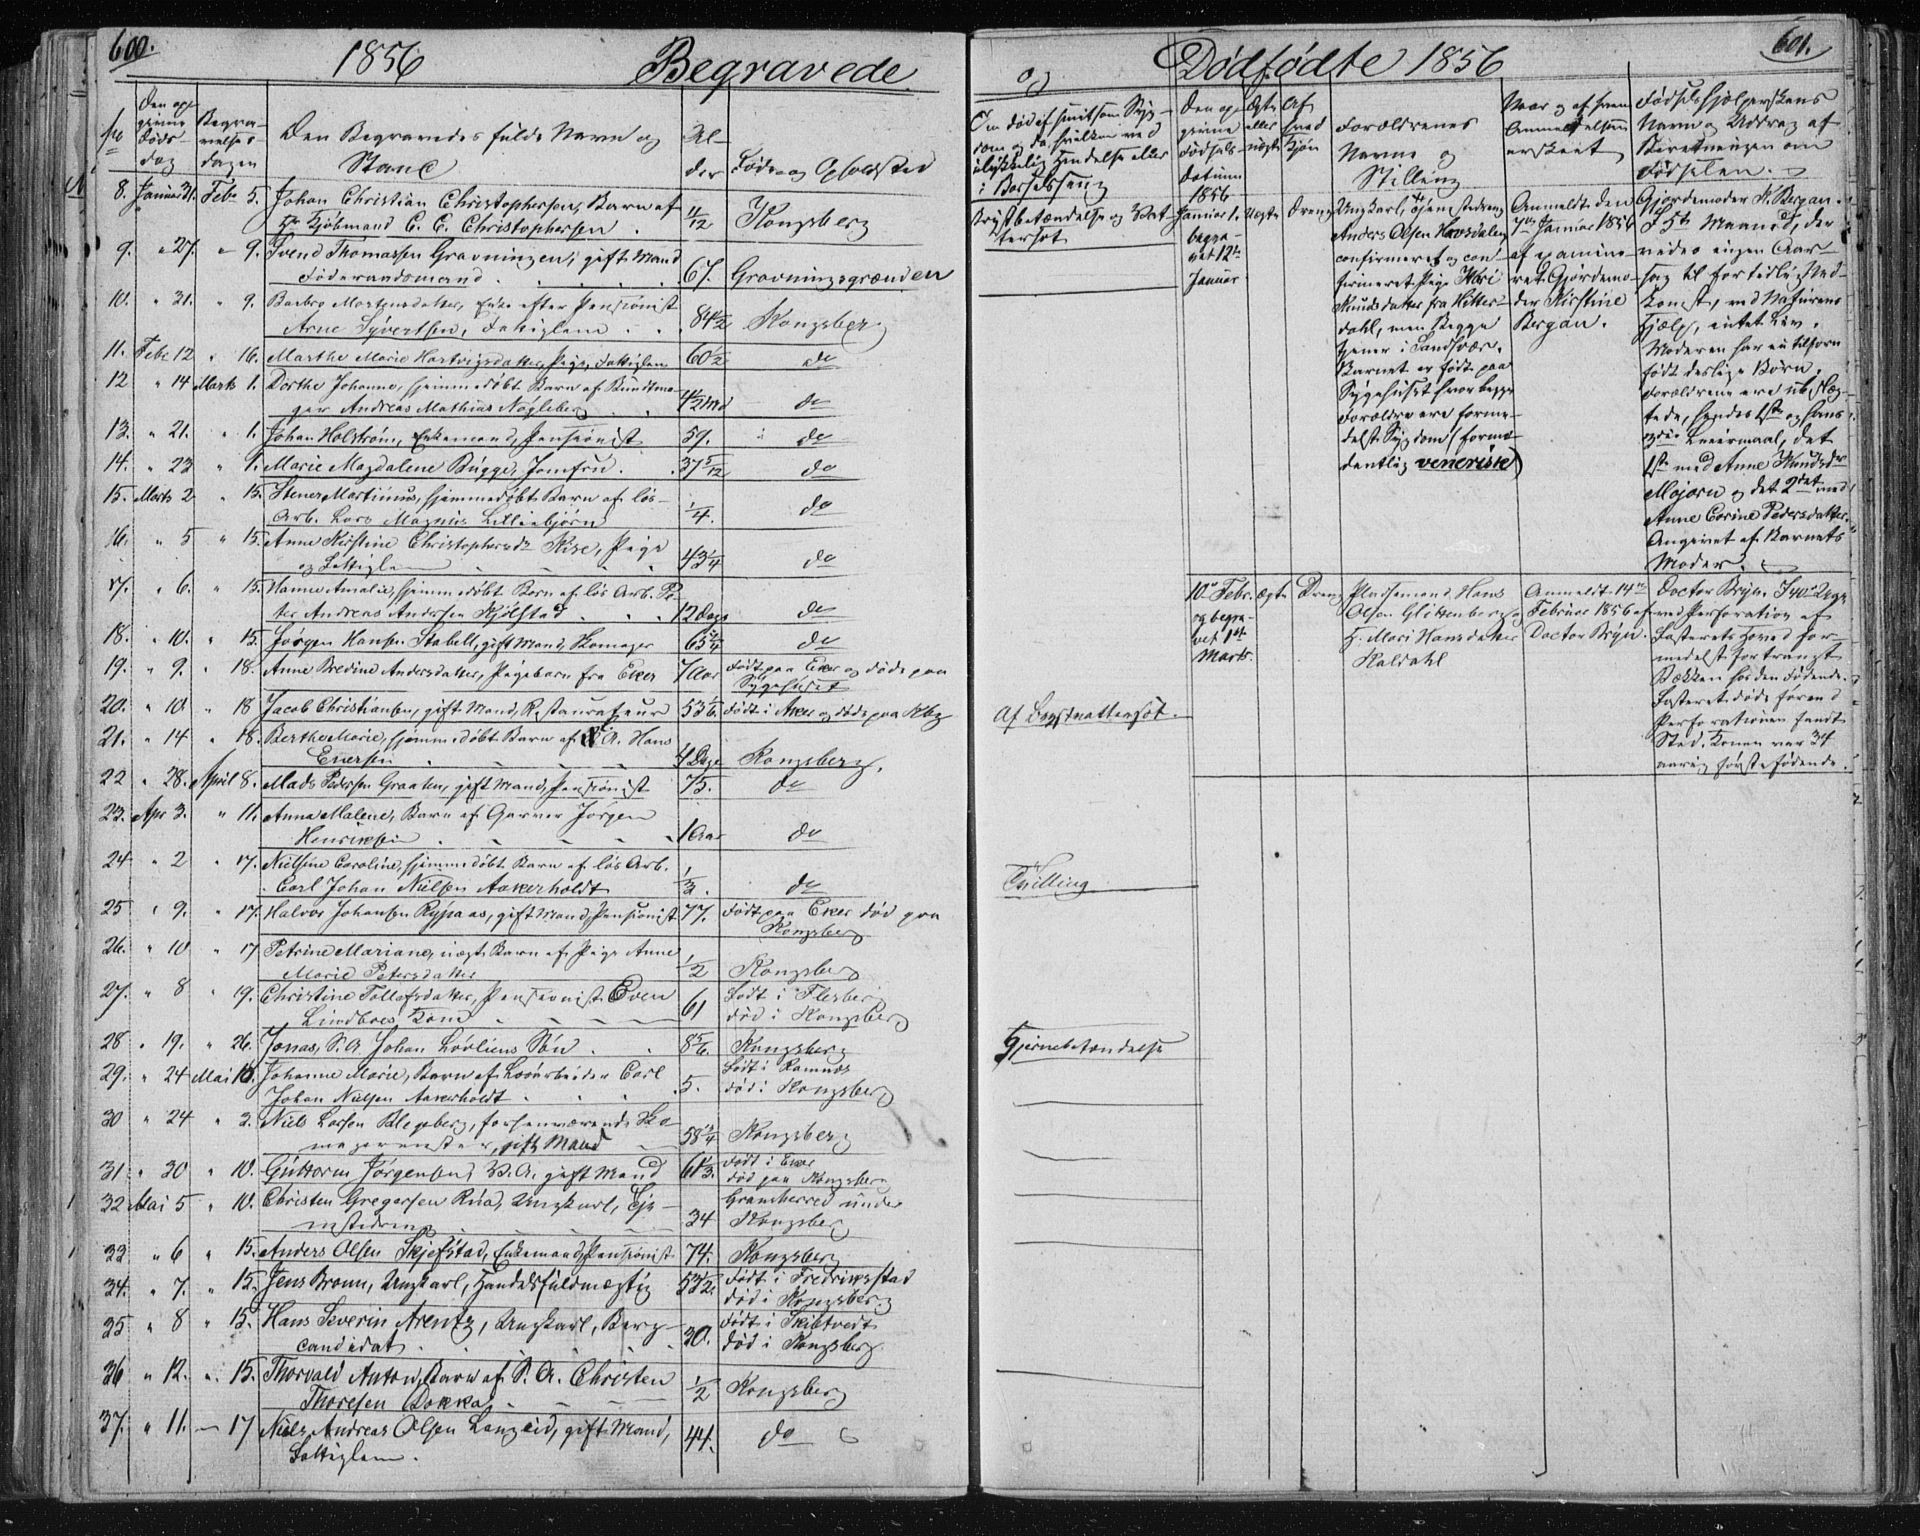 600.
1856
Begravede
No
Den opgivne Dødsdag
Begravelsesdagen
Den Begravedes fulde Navn og Stand
Alder
Føde og Opholdsted
8. Januar 31. Febr 5. Johan Christian Christophersen, Barn af
Hr Kjøbmand C. E. Christophersen . 1/2 Kongsberg
9. " 27. " 9. Svend Thomassen Gravningen, gift Mand
Føderaadsmand 67. Gravningsgrænden
10. " 31. " 9. Barbro Mortensdatter, Enke efter Pensionist
Arne Syvertsen, Fattiglem 84 1/2 Kongsberg
11. Febr 12 " 16. Marthe Marie Hartvigsdatter, Pige, Fattiglem 60 1/2 do
12 " 14 Marts 1. Dorthe Johanne, hjemmedøbt Barn af Bundtma-
ger Andreas Mathias Nøgleberg 4 1/2 Md do
13. " 21. " 1. Johan Holstrøm, Enkemand, Pensionist 59. do
14. " 23 " 1. Marie Magdalene Bugge, Jomfru . 37 5/12 do
15. Marts 2 " 15. Stener Martinius, hjemmedøbt Barn af løs-
Arb. Lars Magnus Lilliebjørn 1/4. do
16. " 5 " 15. Anne Kirstine Christophersdr Kise, Pige
og Fattiglem 43 1/4 do
17. " 6. " 15. Hanne Amalie, hjemmedøbt Barn af løs Arb. Pe-
ter Andreas Andersen Kjølstad . 12 Dage do
18. " 10. " 15. Jørgen Hansen Stabell, gift Mand, Skomager 65 3/4 do
19. " 9. " 18. Anne Bredine Andersdatter, Pigebarn fra Eker 7 Aar født paa Eker og døde paa
Sygehuset
20. " 10 " 18 Jacob Christiansen, gift Mand, Restaurateur 53 1/6. født i Aker og døde paa Kbg
21. " 14 " 18. Berthe Marie, hjemmedøbt Barn af A. Hans
Enersen 4 Dage Kongsberg.
22 " 28. April 8. Mads Pedersen Graaten, gift Mand, Pensionist 75. do
23. Apr 3. " 11. Anna Malene, Barn af Garver Jørgen
Henriksen 1 Aar do
24 " 2 " 17. Nielsine Caroline, hjemmedøbt Barn af løs Arb.
Carl Johan Nielsen Aakerholdt 1/2. do
25 " 9. " 17. Halvor Johansen Rypaas, gift Mand, Pensionist 77. født paa Eker død paa
Kongsberg
26. " 10 " 17 Petrine Mariane, uægte Barn af Pige Anne
Marie Petersdatter 1/2 Kongsberg
27. " 8 " 19. Christine Tollefsdatter, Pensionist Even
Lindboes Kone 61 født i Flesberg
død i Kongsberg
28 " 19. " 26. Jonas, B. A. Johan Løvliens Søn . . 8 5/6. Kongsberg
29. " 24 Mai 10. Johanne Marie, Barn af Løsarbeider Carl
Johan Nielsen Aakerholdt . 5. født i Ramnæs
død i Kongsberg
30 " 24 " 3. Niels Larsen Blegeberg, forhenværende Sko-
magermester, gift Mand 58 3/4 Kongsberg
31 " 30 " 10. Guttorm Jørgensen, B. A. gift Mand 61 1/3. født i Eker
død paa Kongsberg
32 Mai 5 " 10. Christen Gregersen Rua, Ungkarl, Tje-
nestedreng 34 Gransherred under
Kongsberg
33 " 6 " 15. Anders Olsen Skjefstad, Enkemand, Pensionist 74. Kongsberg
34. " 7. " 15. Jens Bronn, Ungkarl, Handelsfuldmægtig 53 1/2. født i Fredriksstad
død i Kongsberg
35 " 8 " 15. Hans Severin Arentz, Ungkarl, Berg-
candidat 30. født i Skibtvedt
død i Kongsberg
36 " 12. " 15. Thorvald Anton, Barn af B. A. Christen
Thoresen Dokka 1/2 Kongsberg
37. " 11. — 17 Niels Andreas Olsen Langlid, gift Mand,
Fattiglem. 44. do
601.
og Dødfødte 1856
Om død af smitsom Syg-
dom og da hvilken ved
ulykkelig Hændelse eller
i Barselseng
Den op-
givne
Fødsels-
Datum
1856
Ægte
eller
uægte
Af
hvad
Kjøn
Forældrenes
Navne og
Stilling
Naar og af hvem
Anmeldelsen
er skeet
Fødselshjelperskens
Navn og Uddrag af
Beretningen om
Fødselen.
Brystbetændelse og Vat-
tersot
Januar 1.
begra-
vet 12te
Januar
Uægte
Dreng
Ungkarl, Tjenestedreng
Anders Olsen Havsdalen
confirmeret og con-
firmeret Pige Kari
Knudsdatter fra Hitter-
dahl, men begge
tjener i Sandsvær.
Barnet er født paa
Sygehuset hvor begge
Forældre ere forme-
delst Sygdom (forme-
dentlig veneriske)
Anmeldt den
7de Januar 1856
af examine-
ret Gjordemo-
der Kirstine
Bergan.
Gjordemoder K. Bergan.
I 5te Maaned, der
vides ingen Aar-
sag til for tidlig Ned-
komst, ved Naturens
Hjælp, intet Liv.
Moderen har ei tilforn
født deslige Børn.
Forældrene ere ubeslæg-
tede, hendes 1ste og hans
3die Leiermaal, det
1ste med Anne Knudsdr
Mojorn og det 2det med
Anne Corine Pedersdatter.
Angivet af Barnets
Moder.
10de Febr.
og begra-
vet 1ste
Marts.
ægte
Dreng
Pladsemand Hans
Olsen Glittenberg og
H. Mari Hansdatter
Kaldahl
Anmeldt 14de
Februar 1856 af
Doctor Bryn.
Doctor Bryn. I 40de Uge
ved Perforation af
Fosterets Hoved for-
medelst fortrangt
Bækken hos den Fødende.
Fosteret døde førend
Perforationen fandt
Sted. Konen var 34
aarig førstefødende.
Af Brystvattersot.
Tvilling
Hjernebetændelse